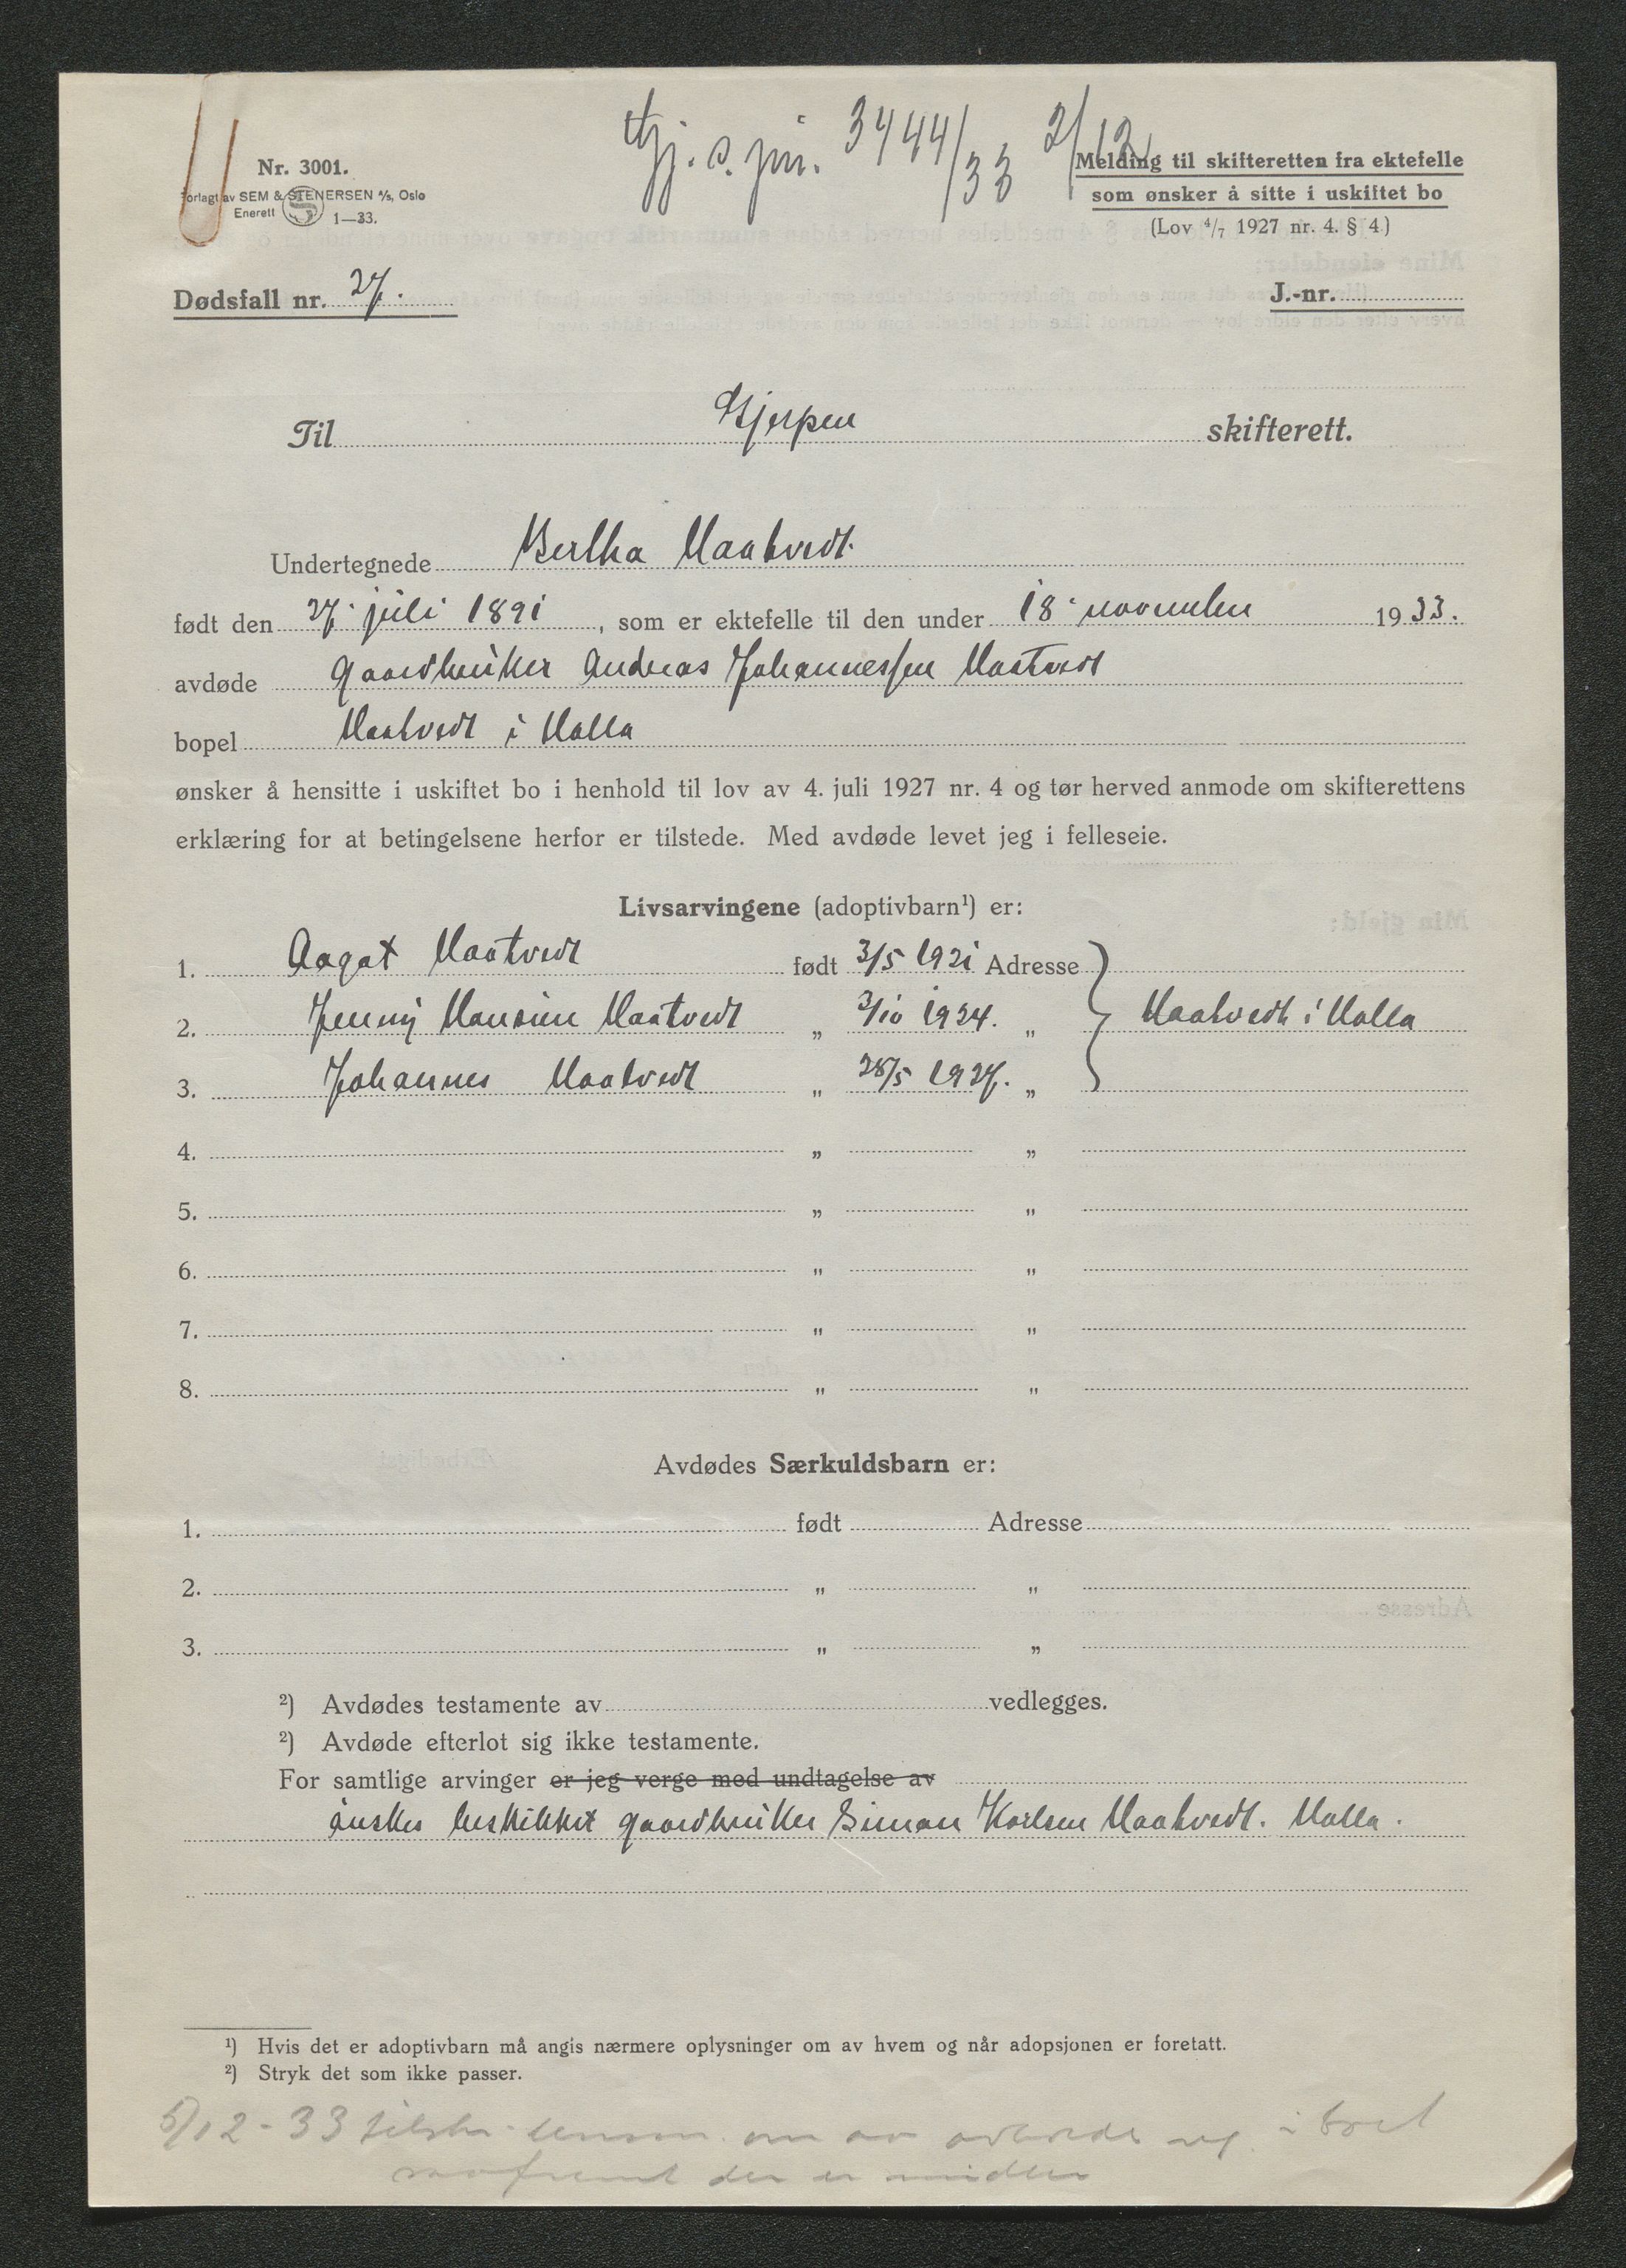 Gj. s. jnr. 3444/33 2/12
Nr. 3001.
Forlagt av SEM & STENERSEN A/S, Oslo
Enerett S 1—33.
Melding til skifteretten fra ektefelle
som ønsker å sitte i uskiftet bo
(Lov 4/7 1927 nr. 4. § 4)
Dødsfall nr. 27.
J.-nr.
Til Gjerpen skifterett.
Undertegnede Bertha Maatvedt
født den 27. juli 1891, som er ektefelle til den under 18. november 1933.
avdøde gaardbruker Andreas Johannessen Maatvedt
bopel Maatvedt i Valla
ønsker å hensitte i uskiftet bo i henhold til lov av 4. juli 1927 nr. 4 og tør herved anmode om skifterettens
erklæring for at betingelsene herfor er tilstede. Med avdøde levet jeg i felleseie.
Livsarvingene (adoptivbarn¹) er:
1. Aagot Maatvedt født 3/5 1921 Adresse
2. Jenny Maatvedt „ 3/10 1924. „ Maatvedt i Valla
3. Johannes Maatvedt „ 28/5 1927. „
4. „ „
5. „ „
6. „ „
7. „ „
8. „ „
Avdødes Særkuldsbarn er:
1. født Adresse
2. „ „
3. „ „
²) Avdødes testamente av vedlegges.
²) Avdøde efterlot sig ikke testamente.
For samtlige arvinger er jeg verge med undtagelse av
ønskes beskikket gaardbruker Simon Karlsen Maatvedt. Valla.
¹) Hvis det er adoptivbarn må angis nærmere oplysninger om av hvem og når adopsjonen er foretatt.
²) Stryk det som ikke passer.
5/12-33 om i boet
der er midler